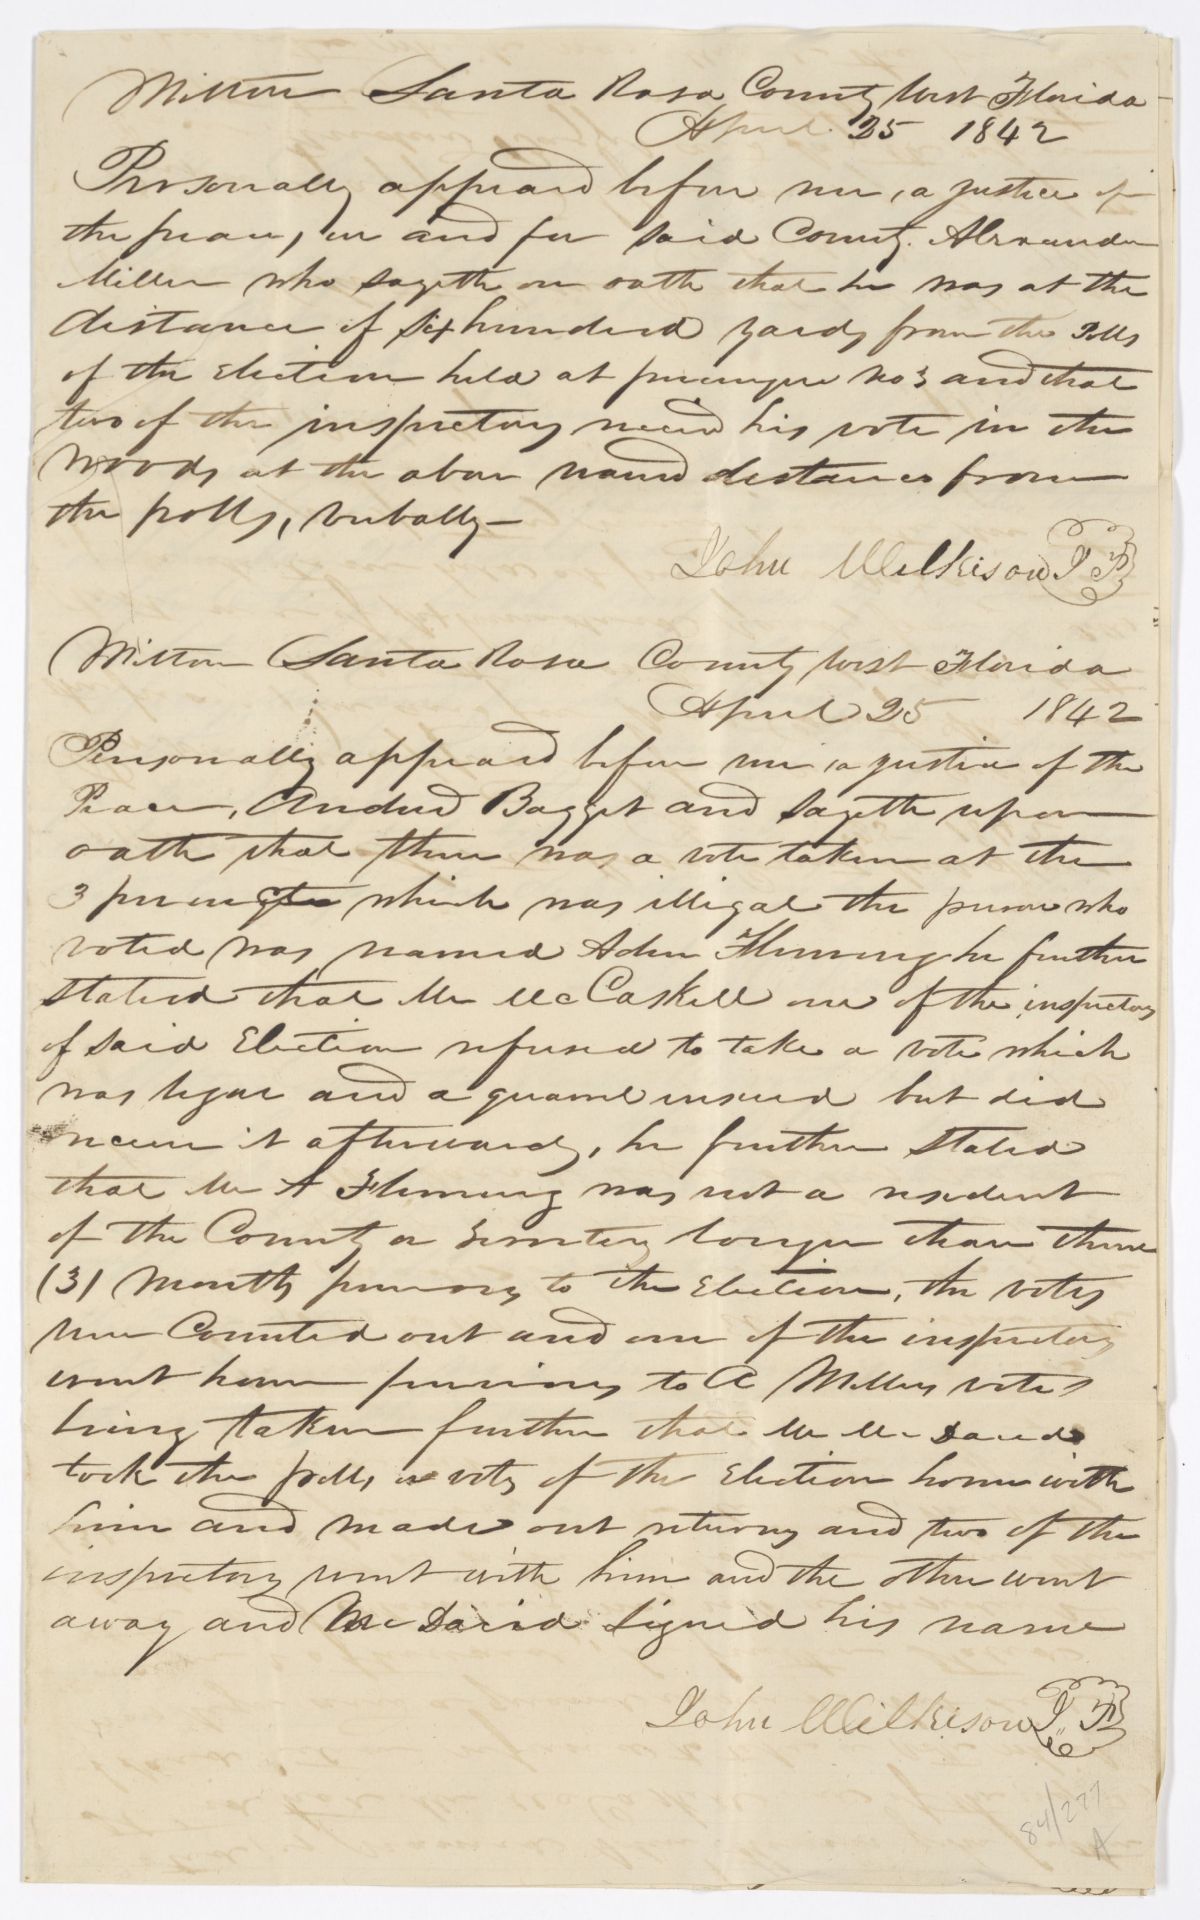 Milton Santa Rosa County West Florida
April 25 1842
Personally appeard before me, a justice of
the peace, in and for said County. Alexander
Miller who sayeth on oath that he was at the
distance of six hundred yards from the Polls
of the Election held at precinque no 3 and that
two of the inspectors recied his vote in the
woods at the above named distance from
the polls, verbally—
John Wilkison J P
Milton Santa Rosa County West Florida
April 25 1842
Personally appeard before me, a justice of the
Peace, Bagget and sayeth upon
oath that there was a vote taken at the
3 which was illegal the person who
voted was named Flemming he further
stated that Mr McCaskell one of the inspectors
of said Election refused to take a vote which
was legal and a quarrel insued but did
receive it afterwards, he further stated
that Mr A Flemming was not a resident
of the County or longer than three
(3) Months previous to the Election, the votes
were Counted out and one of the inspectors
went home previous to A Millers vote
being taken further that Mr Mc David
took the polls or votes of the Election home with
him and made out returns and two of the
inspectors went with him and the other went
away and Mc David signed his name
John Wilkison J. P.
84/277
A